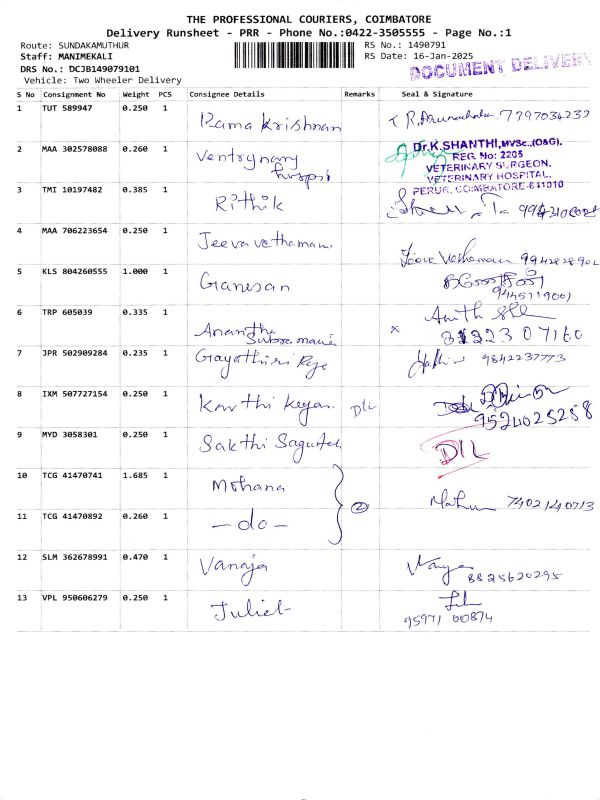 THE PROFESSIONAL COURIERS, COIMBATORE
Delivery Runsheet - PRR - Phone No.:0422-3505555 - Page No.:1
Route: SUNDAKAMUTHUR
RS No.: 1490791
Staff: MANIMEKALI
RS Date: 16-Jan-2025
DRS No.: DCJB149079101
DOCUMENT DELIVERY
Vehicle: Two Wheeler Delivery
S No Consignment No Weight PCS Consignee Details Remarks Seal & Signature
1 TUT 589947 0.250 1 Rama Krishnan 7397034233
2 MAA 302578088 0.260 1 Ventrynary
Dr.K.SHANTHI,MVSc.,(O&G).
REG. No: 2205
VETERINARY SURGEON,
VETERINARY HOSPITAL,
PERUR, COIMBATORE-641010
3 TMI 10197482 0.385 1 Rithik
4 MAA 706223654 0.250 1 Jeeva vethamani
5 KLS 804260555 1.000 1 Ganesan
6 TRP 605039 0.335 1 Anantha x
7 JPR 502909284 0.235 1 Gayathiri 9842237773
8 IXM 507727154 0.250 1 Karthi Keyan D/L 9524025258
9 MYD 3058301 0.250 1 Sakthi D/L
10 TCG 41470741 1.685 1 Mohana
2 7402140713
11 TCG 41470892 0.260 1 - do -
12 SLM 362678991 0.470 1 Vanaja 8825620295
13 VPL 950606279 0.250 1 Juliet
95971 00874